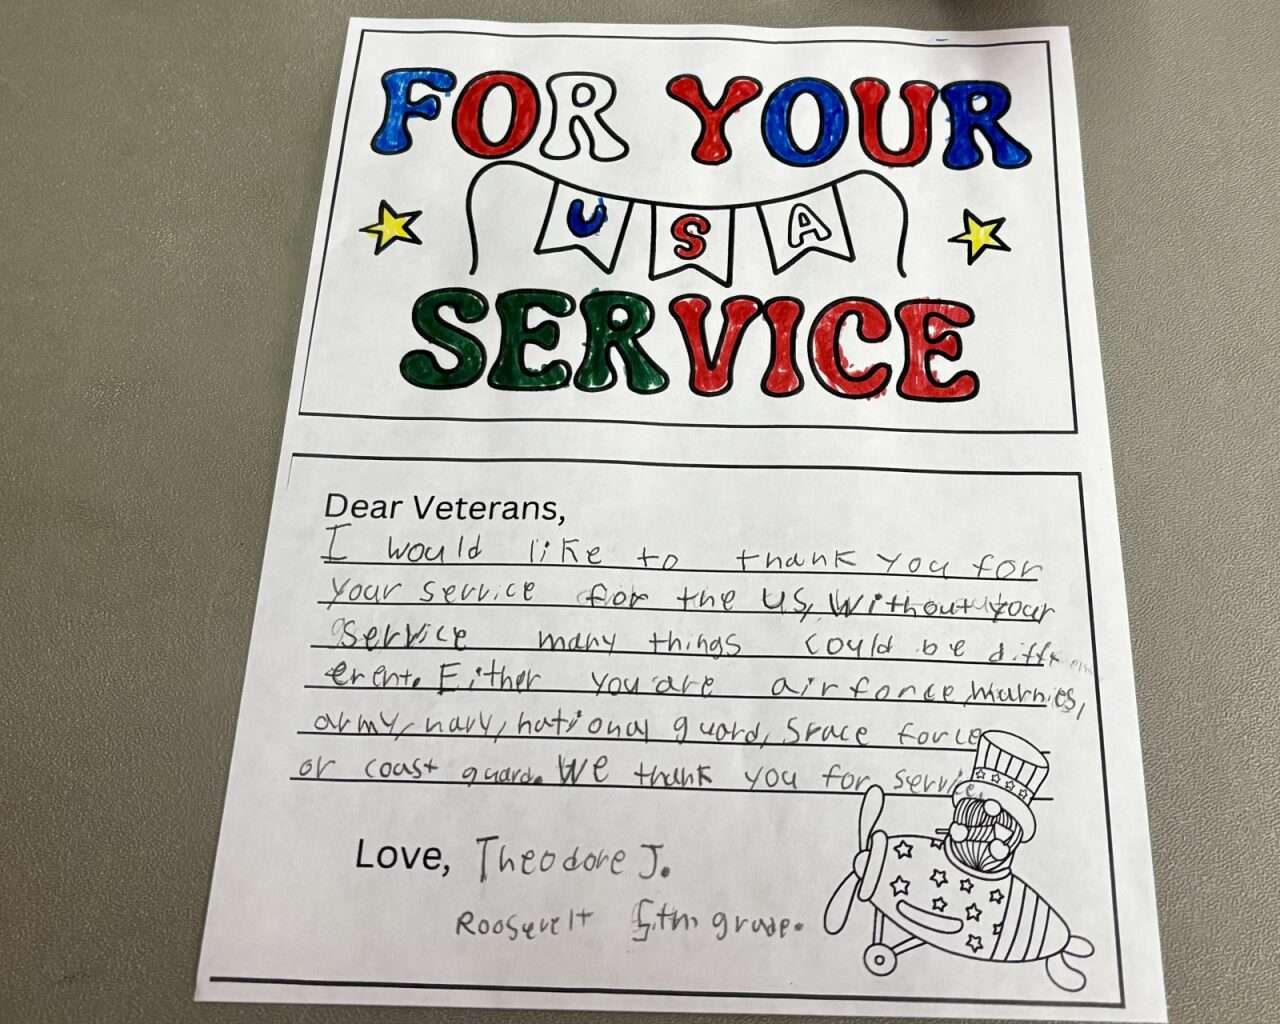 FOR YOUR
USA
SERVICE
Dear Veterans,
I would like to thank you for
your service for the US, Without your
service many things could be diff
erent. Either you are airforce, marnies,
army, navy, national guard, Space force
or coast guard. We thank you for service.
Love, Theodore J.
Roosevelt 5th grade.